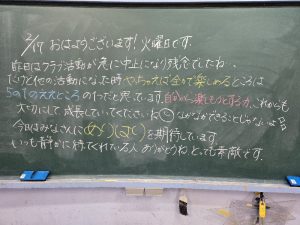 2/17 おはようございます！火曜日です。
昨日はクラブ活動が急に中止になり残念でしたね…
だけど他の活動になった時やっちゃえば全力で楽しめるところは
5の1のええところの1つだと思っています。自分から楽しもうとする力、これからも
大切にして成長していってくださいね なかなかできることじゃないよ
今日はみなさんに を期待しています。
いつも静かに待てくれている人ありがとうね。とっても素敵です。